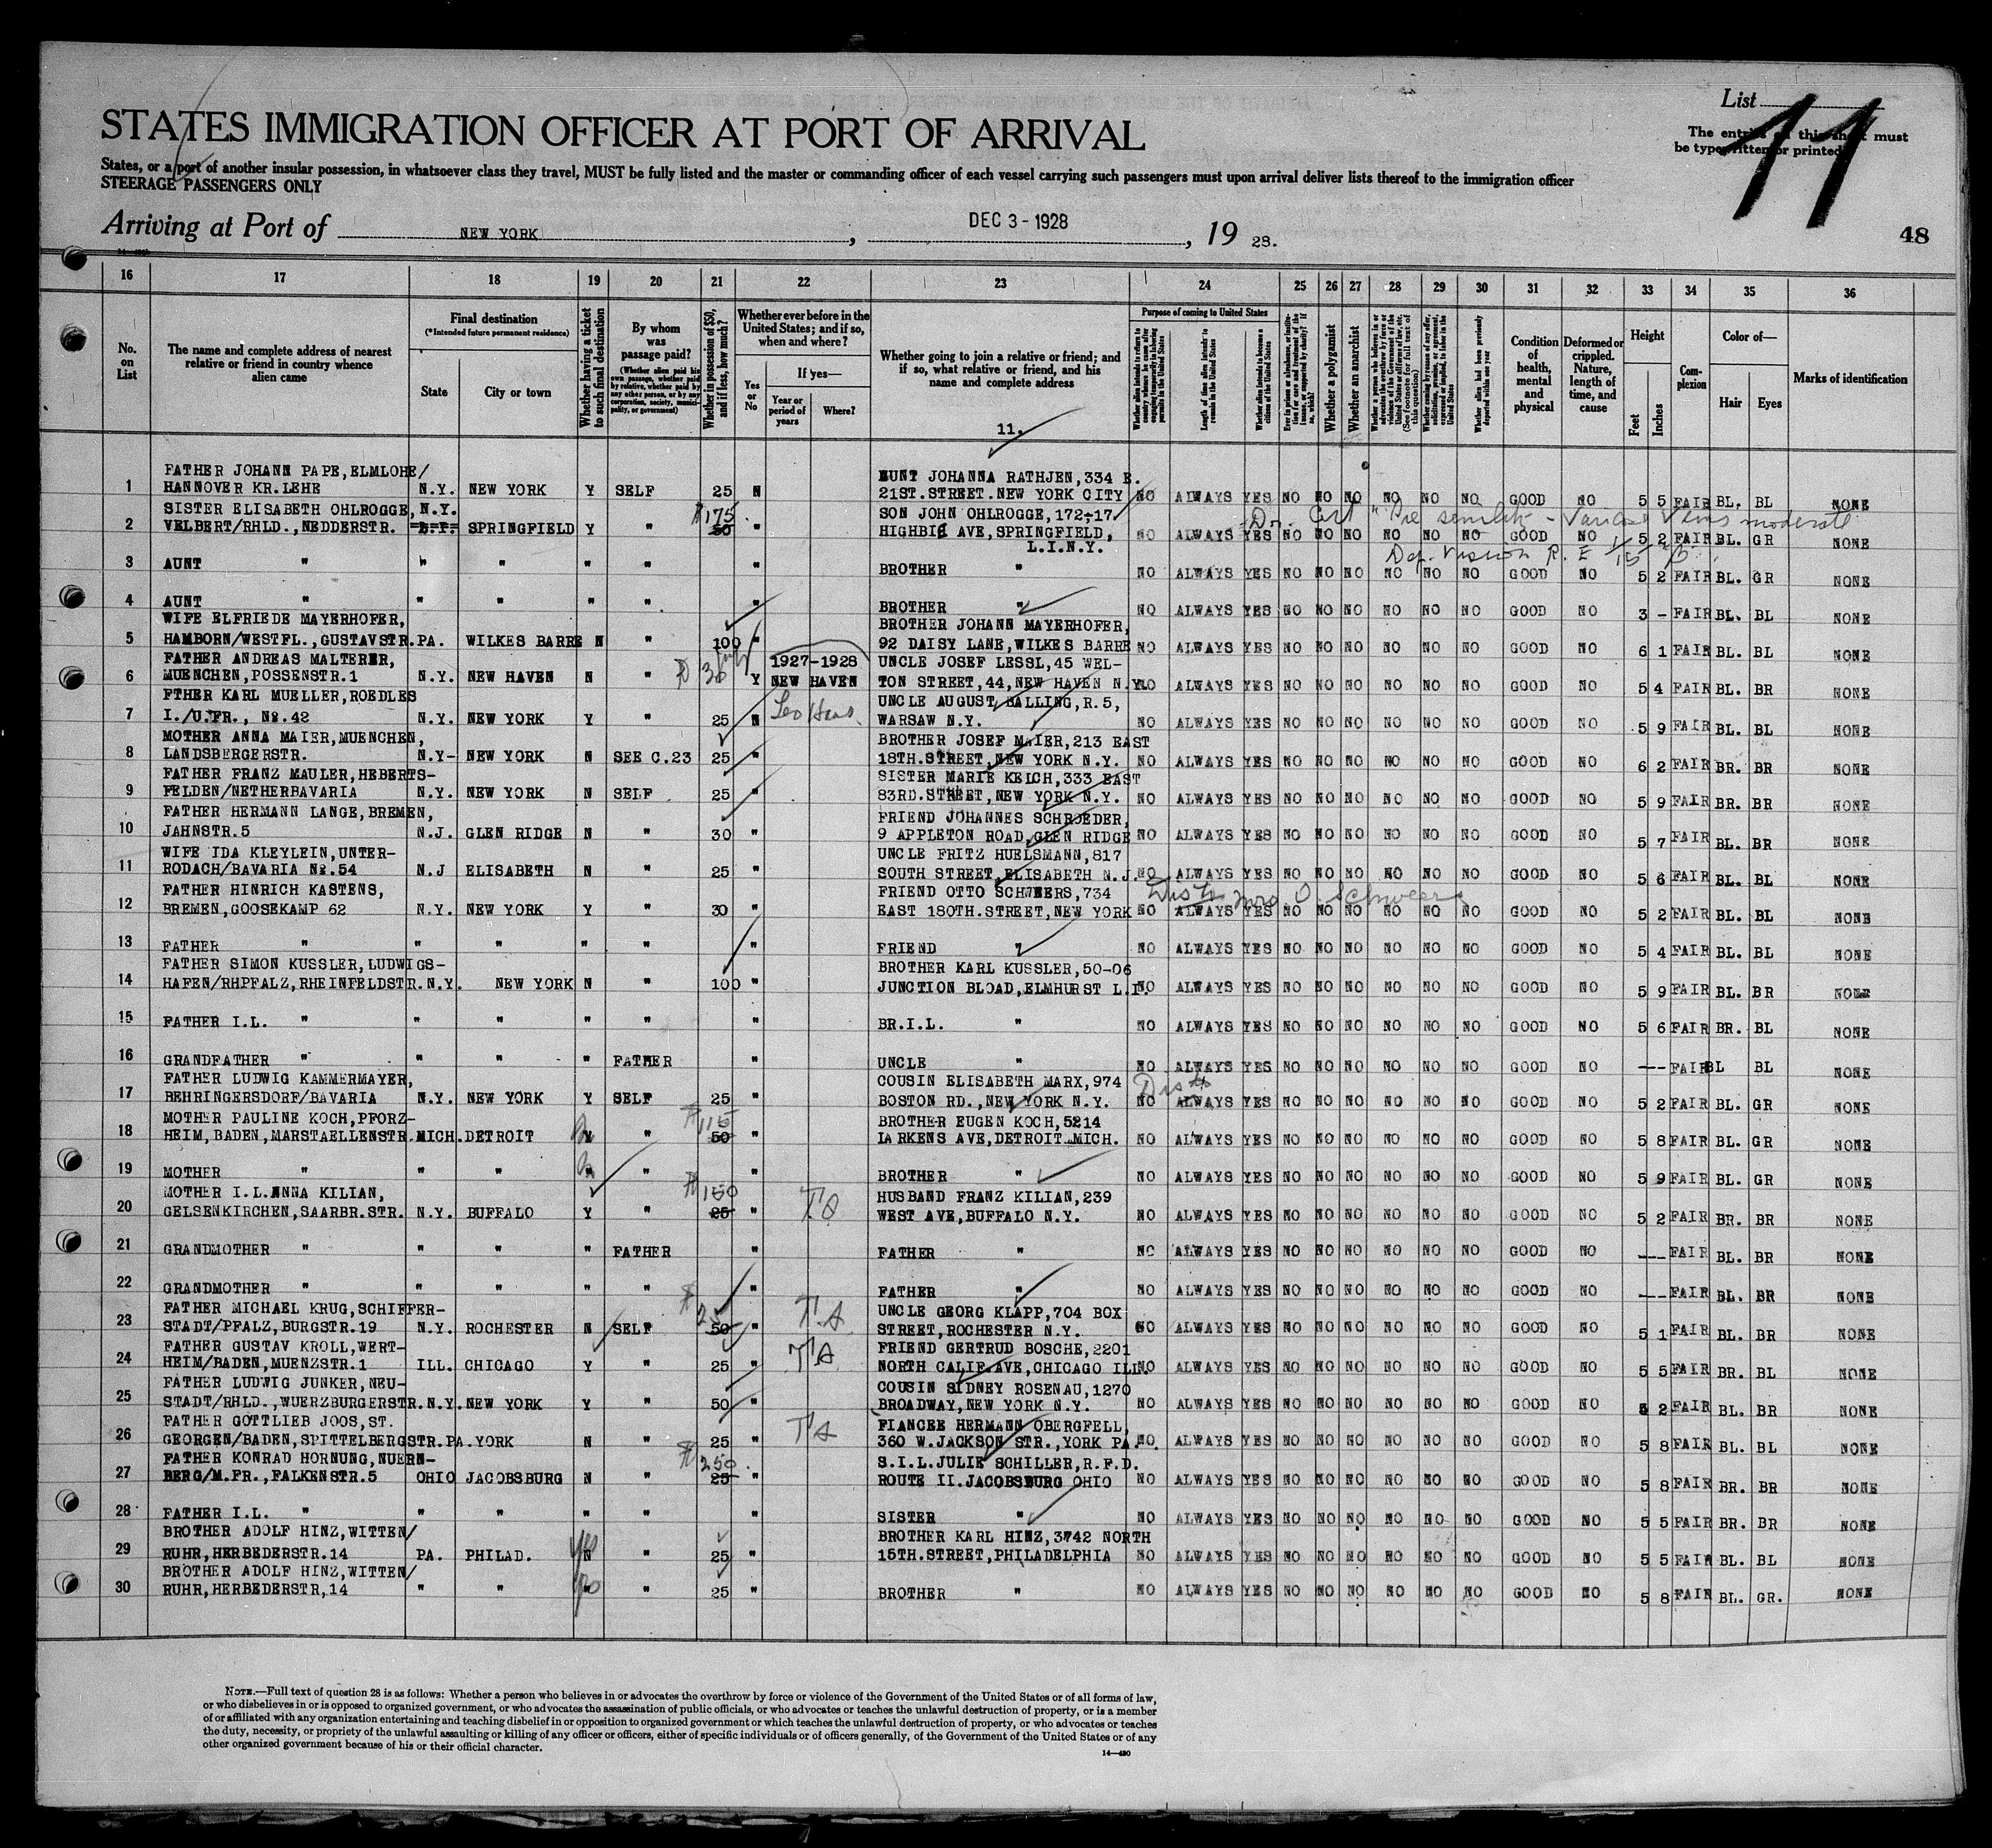 List
11
The entries on this sheet must
be typewritten or printed
STATES IMMIGRATION OFFICER AT PORT OF ARRIVAL
States, or a port of another insular possession, in whatsoever class they travel, MUST be fully listed and the master or commanding officer of each vessel carrying such passengers must upon arrival deliver lists thereof to the immigration officer
STEERAGE PASSENGERS ONLY
Arriving at Port of NEW YORK, DEC 3 - 1928, 19 28.
48
16 17 18 19 20 21 22 23 24 25 26 27 28 29 30 31 32 33 34 35 36
No. on List
The name and complete address of nearest relative or friend in country whence alien came
Final destination
(*Intended future permanent residence)
State
City or town
Whether having a ticket to such final destination
By whom was passage paid?
(Whether alien paid his own passage, whether paid by relative, whether paid by any other person, or by any corporation, society, municipality, or government)
Whether in possession of $50, and if less, how much?
Whether ever before in the United States; and if so, when and where?
Yes or No
If yes—
Year or period of years
Where?
Whether going to join a relative or friend; and if so, what relative or friend, and his name and complete address
11.
Purpose of coming to United States
Length of time alien intends to remain in the United States
Whether alien intends to become a citizen of the United States
Whether a polygamist
Whether an anarchist
Condition of health, mental and physical
Deformed or crippled. Nature, length of time, and cause
Height
Feet
Inches
Complexion
Color of—
Hair
Eyes
Marks of identification
FATHER JOHANN PAPE, ELMLOHE/ HUNT JOHANNA RATHJEN, 334 E.
1 HANNOVER KR.LEHE N.Y. NEW YORK Y SELF 25 N 21ST.STREET.NEW YORK CITY NO ALWAYS YES NO NO NO NO NO NO GOOD NO 5 5 FAIR BL. BL NONE
SISTER ELISABETH OHLROGGE, N.Y. $175. SON JOHN OHLROGGE, 172-17 Dr. Cert "Pre senility - Varicose Veins moderate
2 VELBERT/RHLD., NEDDERSTR. SPRINGFIELD Y " 50 " HIGHBIE AVE, SPRINGFIELD, NO ALWAYS YES NO NO NO NO NO NO GOOD NO 5 2 FAIR BL. GR NONE
L.I.N.Y. Def. Vision R. E 1/15
3 AUNT " " " " " " BROTHER " NO ALWAYS YES NO NO NO NO NO NO GOOD NO 5 2 FAIR BL. GR NONE
4 AUNT " " " " " " BROTHER " NO ALWAYS YES NO NO NO NO NO NO GOOD NO 3 - FAIR BL. BL NONE
WIFE ELFRIEDE MAYERHOFER, BROTHER JOHANN MAYERHOFER,
5 HAMBORN/WESTFL., GUSTAVSTR. PA. WILKES BARRE N " 100 " 92 DAISY LANE, WILKES BARRE NO ALWAYS YES NO NO NO NO NO NO GOOD NO 6 1 FAIR BL. BL NONE
FATHER ANDREAS MALTERER, 1927-1928 UNCLE JOSEF LESSL, 45 WEL-
6 MUENCHEN, POSSENSTR.1 N.Y. NEW HAVEN N " 30 Y NEW HAVEN TON STREET, 44, NEW HAVEN N.Y. NO ALWAYS YES NO NO NO NO NO NO GOOD NO 5 4 FAIR BL. BR NONE
FTHER KARL MUELLER, ROEDLES UNCLE AUGUST BALLING, R.5,
7 I./U.FR., No.42 N.Y. NEW YORK Y " 25 N WARSAW N.Y. NO ALWAYS YES NO NO NO NO NO NO GOOD NO 5 9 FAIR BL. BL NONE
MOTHER ANNA MAIER, MUENCHEN, BROTHER JOSEF MAIER, 213 EAST
8 LANDSBERGERSTR. N.Y- NEW YORK N SEE C.23 25 " 18TH.STREET, NEW YORK N.Y. NO ALWAYS YES NO NO NO NO NO NO GOOD NO 6 2 FAIR BR. BR NONE
FATHER FRANZ MAULER, HEBERTS- SISTER MARIE KEICH, 333 EAST
9 FELDEN/NETHERBAVARIA N.Y. NEW YORK N SELF 25 " 83RD.STREET, NEW YORK N.Y. NO ALWAYS YES NO NO NO NO NO NO GOOD NO 5 9 FAIR BR. BR NONE
FATHER HERMANN LANGE, BREMEN, FRIEND JOHANNES SCHROEDER,
10 JAHNSTR.5 N.J. GLEN RIDGE N " 30 " 9 APPLETON ROAD, GLEN RIDGE NO ALWAYS YES NO NO NO NO NO NO GOOD NO 5 7 FAIR BL. BR NONE
WIFE IDA KLEYLEIN, UNTER- UNCLE FRITZ HUELSMANN, 817
11 RODACH/BAVARIA No.54 N.J ELISABETH N " 25 " SOUTH STREET, ELISABETH N.J. NO ALWAYS YES NO NO NO NO NO NO GOOD NO 5 6 FAIR BL. BL NONE
FATHER HINRICH KASTENS, FRIEND OTTO SCHWEERS, 734 Dis to Mrs. O. Schweers
12 BREMEN, GOOSEKAMP 62 N.Y. NEW YORK Y " 30 " EAST 180TH.STREET, NEW YORK NO ALWAYS YES NO NO NO NO NO NO GOOD NO 5 2 FAIR BL. BL NONE
13 FATHER " " " " " " FRIEND " NO ALWAYS YES NO NO NO NO NO NO GOOD NO 5 4 FAIR BL. BL NONE
FATHER SIMON KUSSLER, LUDWIGS- BROTHER KARL KUSSLER, 50-06
14 HAFEN/RHPFALZ, RHEINFELDSTR. N.Y. NEW YORK N " 100 " JUNCTION BLOAD, ELMHURST L.I. NO ALWAYS YES NO NO NO NO NO NO GOOD NO 5 9 FAIR BL. BR NONE
15 FATHER I.L. " " " " " " BR.I.L. " NO ALWAYS YES NO NO NO NO NO NO GOOD NO 5 6 FAIR BR. BL NONE
16 GRANDFATHER " " " " FATHER " UNCLE " NO ALWAYS YES NO NO NO NO NO NO GOOD NO --- FAIR BL BL NONE
FATHER LUDWIG KAMMERMAYER, COUSIN ELISABETH MARX, 974 Dis to
17 BEHRINGERSDORF/BAVARIA N.Y. NEW YORK Y SELF 25 " BOSTON RD., NEW YORK N.Y. NO ALWAYS YES NO NO NO NO NO NO GOOD NO 5 2 FAIR BL. GR NONE
MOTHER PAULINE KOCH, PFORZ- $115 BROTHER EUGEN KOCH, 5214
18 HEIM, BADEN, MARSTAELLENSTR. MICH. DETROIT " 50 " LARKENS AVE, DETROIT MICH. NO ALWAYS YES NO NO NO NO NO NO GOOD NO 5 8 FAIR BL. GR NONE
19 MOTHER " " " " " BROTHER " NO ALWAYS YES NO NO NO NO NO NO GOOD NO 5 9 FAIR BL. GR NONE
MOTHER I.L.ANNA KILIAN, $150 HUSBAND FRANZ KILIAN, 239
20 GELSENKIRCHEN, SAARBR.STR. N.Y. BUFFALO Y " 25 " WEST AVE, BUFFALO N.Y. NO ALWAYS YES NO NO NO NO NO NO GOOD NO 5 2 FAIR BR. BR NONE
21 GRANDMOTHER " " " " FATHER " FATHER " NO ALWAYS YES NO NO NO NO NO NO GOOD NO --- FAIR BL. BR NONE
22 GRANDMOTHER " " " " " " FATHER " NO ALWAYS YES NO NO NO NO NO NO GOOD NO --- FAIR BL. BR NONE
FATHER MICHAEL KRUG, SCHIFFER- $25 T.A UNCLE GEORG KLAPP, 704 BOX
23 STADT/PFALZ, BURGSTR.19 N.Y. ROCHESTER N SELF 50 " STREET, ROCHESTER N.Y. NO ALWAYS YES NO NO NO NO NO NO GOOD NO 5 1 FAIR BL. BR NONE
FATHER GUSTAV KROLL, WERT- TA FRIEND GERTRUD BOSCHE, 2201
24 HEIM/BADEN, MUENZSTR.1 ILL. CHICAGO Y " 25 " NORTH CALIF.AVE, CHICAGO ILL. NO ALWAYS YES NO NO NO NO NO NO GOOD NO 5 5 FAIR BR. BL NONE
FATHER LUDWIG JUNKER, NEU- COUSIN SIDNEY ROSENAU, 1270
25 STADT/RHLD., WUERZBURGERSTR. N.Y. NEW YORK Y " 50 " BROADWAY, NEW YORK N.Y. NO ALWAYS YES NO NO NO NO NO NO GOOD NO 5 2 FAIR BL. BR NONE
FATHER GOTTLIEB JOOS, ST. TA FIANCEE HERMANN OBERGFELL,
26 GEORGEN/BADEN, SPITTELBERGSTR. PA. YORK N " 25 " 360 W.JACKSON STR., YORK PA. NO ALWAYS YES NO NO NO NO NO NO GOOD NO 5 8 FAIR BL. BL NONE
FATHER KONRAD HORNUNG, NUERN- $250. S.I.L.JULIE SCHILLER, R.F.D.
27 BERG/M.FR., FALKENSTR.5 OHIO JACOBSBURG N " 25 " ROUTE II.JACOBSBURG OHIO NO ALWAYS YES NO NO NO NO NO NO GOOD NO 5 8 FAIR BR. BR NONE
28 FATHER I.L. " " " " " " SISTER " NO ALWAYS YES NO NO NO NO NO NO GOOD NO 5 5 FAIR BR. BR NONE
BROTHER ADOLF HINZ, WITTEN/ BROTHER KARL HINZ, 3742 NORTH
29 RUHR, HERBEDERSTR.14 PA. PHILAD. yes " 25 " 15TH.STREET, PHILADELPHIA NO ALWAYS YES NO NO NO NO NO NO GOOD NO 5 5 FAIR BL. BL NONE
BROTHER ADOLF HINZ, WITTEN/
30 RUHR, HERBEDERSTR, 14 " " yes " 25 " BROTHER " NO ALWAYS YES NO NO NO NO NO NO GOOD NO 5 8 FAIR BL. GR. NONE
NOTE.—Full text of question 28 is as follows: Whether a person who believes in or advocates the overthrow by force or violence of the Government of the United States or of all forms of law,
or who disbelieves in or is opposed to organized government, or who advocates the assassination of public officials, or who advocates or teaches the unlawful destruction of property, or is a member
of or affiliated with any organization entertaining and teaching disbelief in or opposition to organized government or which teaches the unlawful destruction of property, or who advocates or teaches
the duty, necessity, or propriety of the unlawful assaulting or killing of any officer or officers, either of specific individuals or of officers generally, of the Government of the United States or of any
other organized government because of his or their official character.
14—430